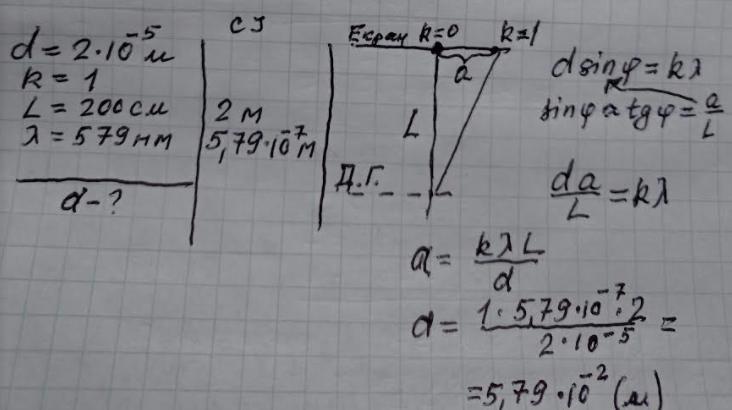 СІ
d = 2·10⁻⁵ м
k = 1
L = 200 см 2 м
λ = 579 нм 5,79·10⁻⁷ м
a - ?
Екран k=0 k=1
a
L
Д.Г.
d sinφ = kλ
sinφ ≈ tgφ = a/L
da/L = kλ
a = kλL/d
a = 1·5,79·10⁻⁷·2/2·10⁻⁵ =
= 5,79·10⁻² (м)